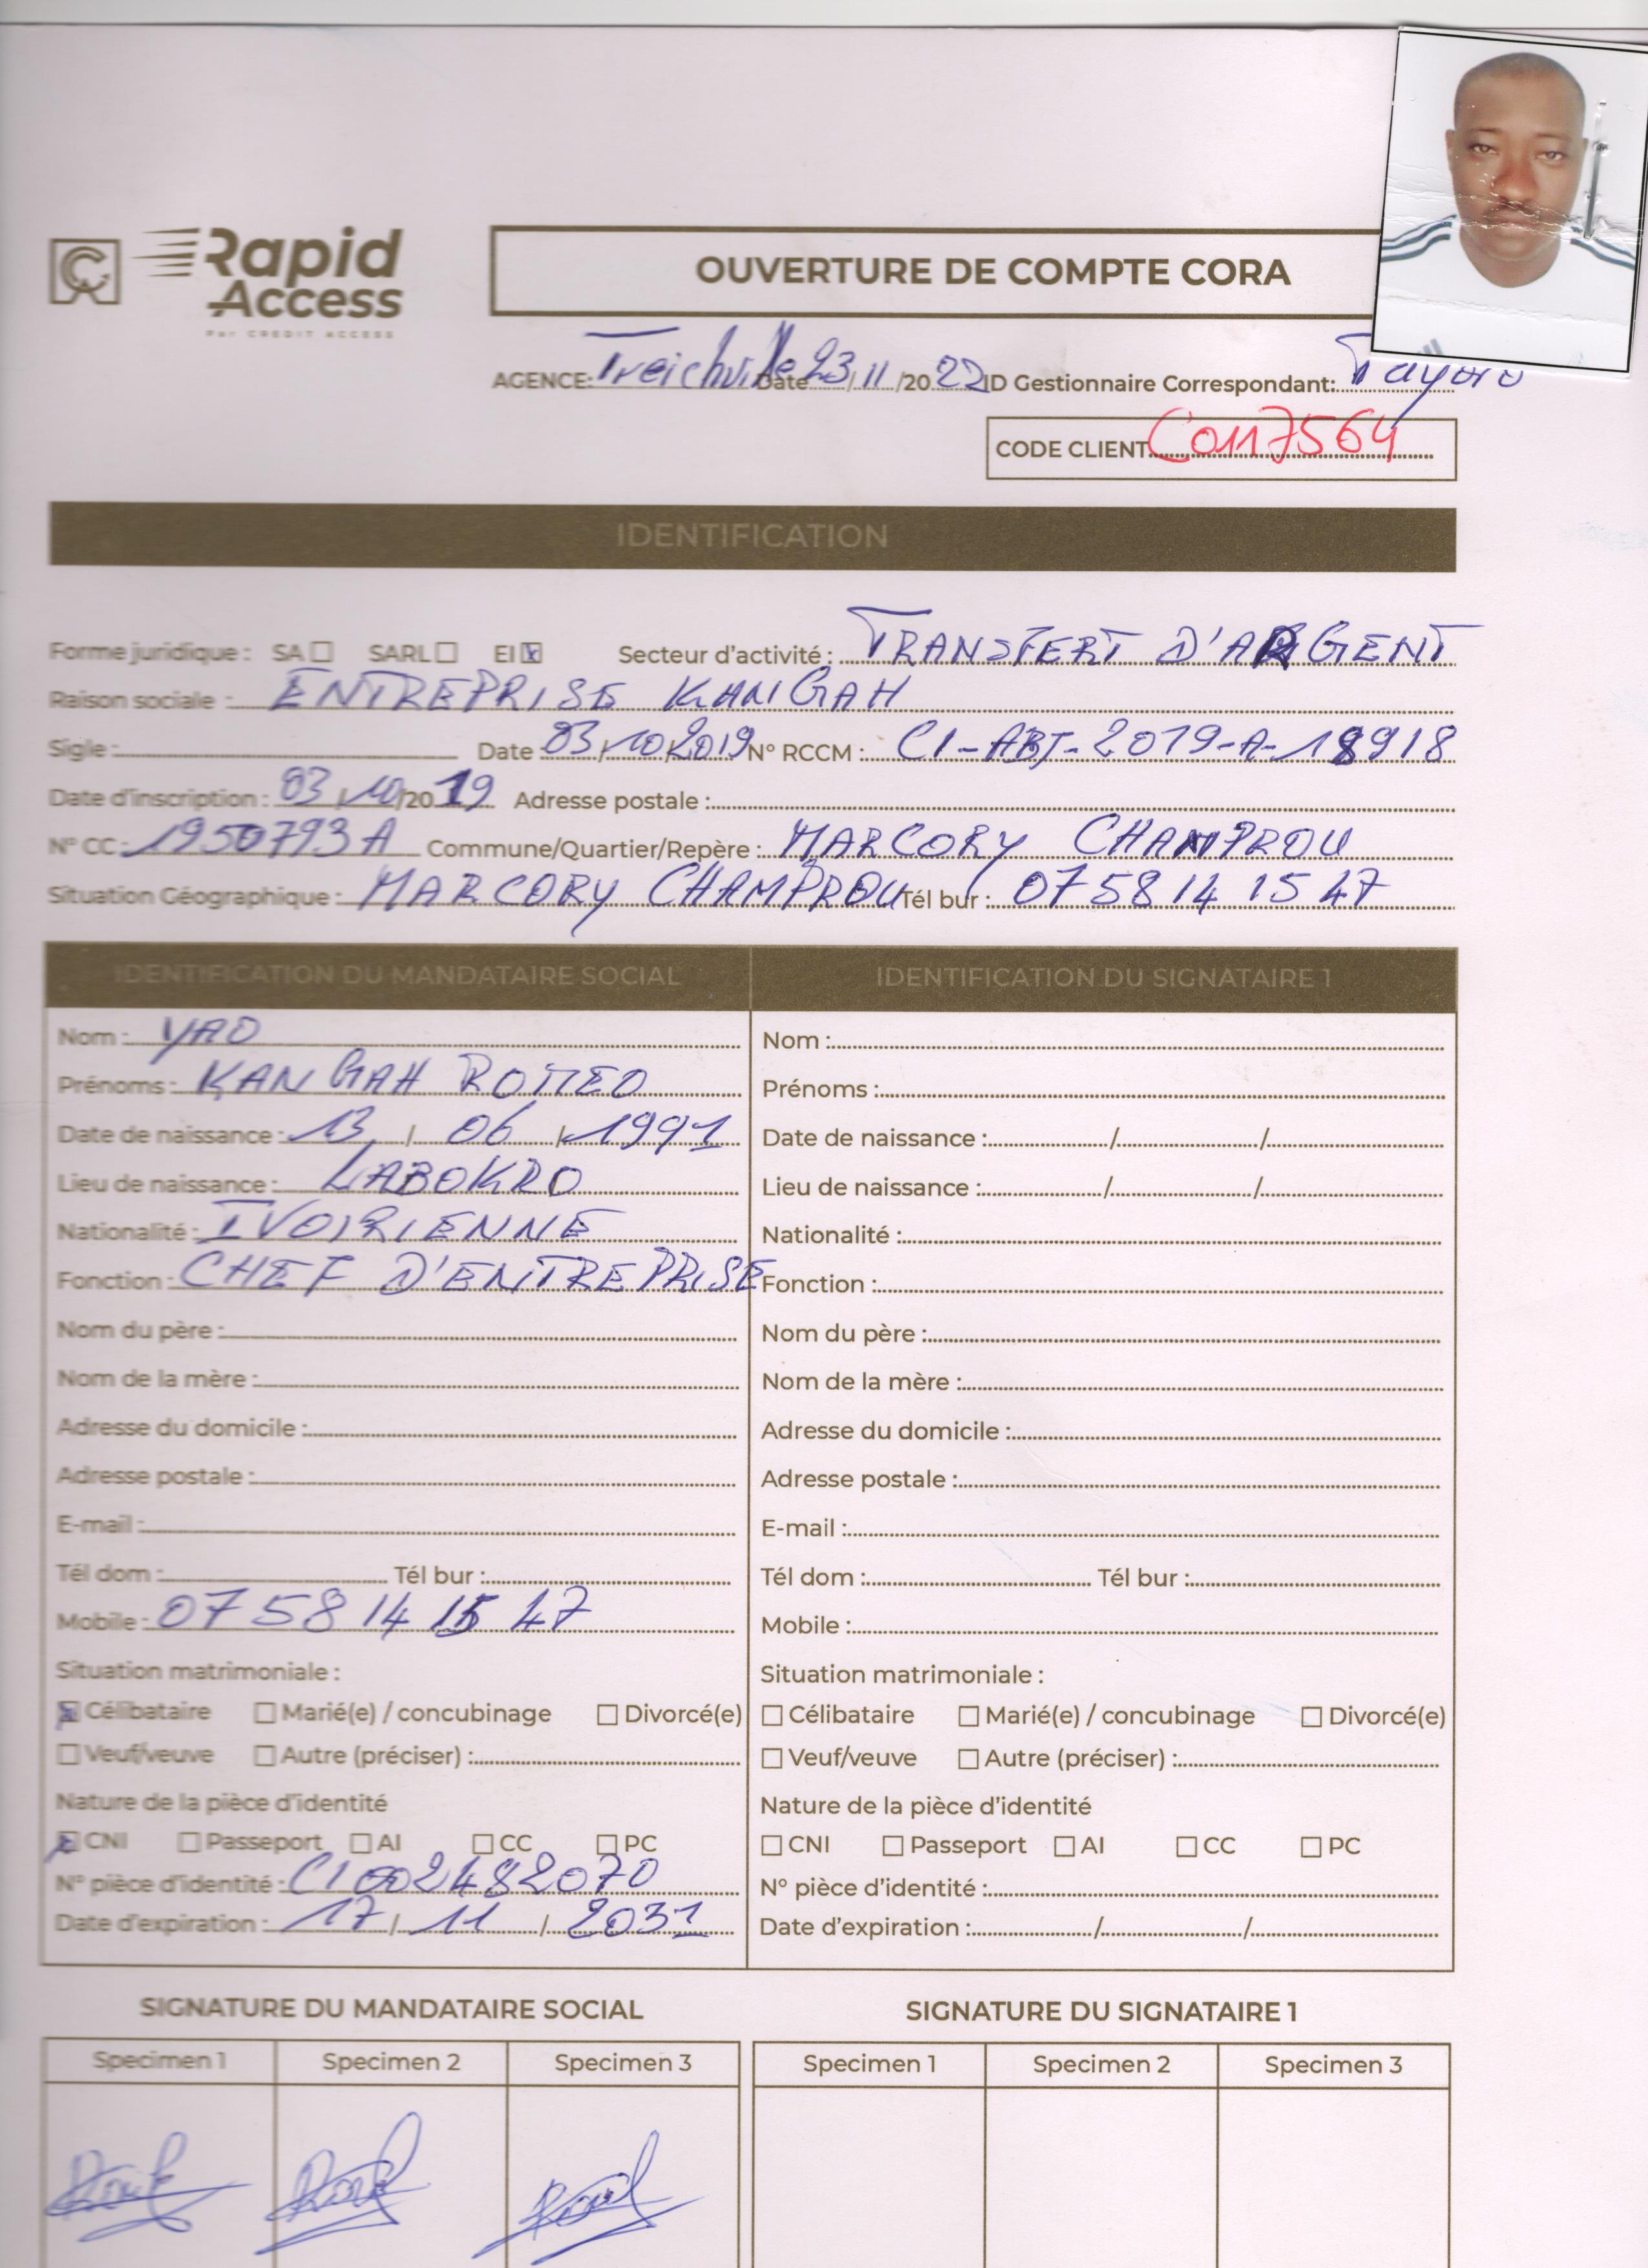 Rapid
Access
Par CREDIT ACCESS
OUVERTURE DE COMPTE CORA
AGENCE: Treichville Date 23/11/2022 ID Gestionnaire Correspondant:
CODE CLIENT C0117564
IDENTIFICATION
Forme juridique : SA SARL EI Secteur d'activité : TRANSFERT D'ARGENT
Raison sociale : ENTREPRISE KANGAH
Sigle : Date 03/10/2019 N° RCCM : CI-ABJ-2019-A-18918
Date d'inscription : 03/10/2019 Adresse postale :
N° CC : 1950793A Commune/Quartier/Repère : MARCORY CHAMPROU
Situation Géographique : MARCORY CHAMPROU Tél bur : 07 58 14 15 47
IDENTIFICATION DU MANDATAIRE SOCIAL IDENTIFICATION DU SIGNATAIRE 1
Nom : YAO Nom :
Prénoms : KANGAH ROMEO Prénoms :
Date de naissance : 13 / 06 / 1991 Date de naissance : / /
Lieu de naissance : LABOKRO Lieu de naissance : / /
Nationalité : IVOIRIENNE Nationalité :
Fonction : CHEF D'ENTREPRISE Fonction :
Nom du père : Nom du père :
Nom de la mère : Nom de la mère :
Adresse du domicile : Adresse du domicile :
Adresse postale : Adresse postale :
E-mail : E-mail :
Tél dom : Tél bur : Tél dom : Tél bur :
Mobile : 07 58 14 15 47 Mobile :
Situation matrimoniale : Situation matrimoniale :
Célibataire Marié(e) / concubinage Divorcé(e) Célibataire Marié(e) / concubinage Divorcé(e)
Veuf/veuve Autre (préciser) : Veuf/veuve Autre (préciser) :
Nature de la pièce d'identité Nature de la pièce d'identité
CNI Passeport AI CC PC CNI Passeport AI CC PC
N° pièce d'identité : CI002482070 N° pièce d'identité :
Date d'expiration : 17 / 11 / 2031 Date d'expiration : / /
SIGNATURE DU MANDATAIRE SOCIAL SIGNATURE DU SIGNATAIRE 1
Specimen 1 Specimen 2 Specimen 3 Specimen 1 Specimen 2 Specimen 3